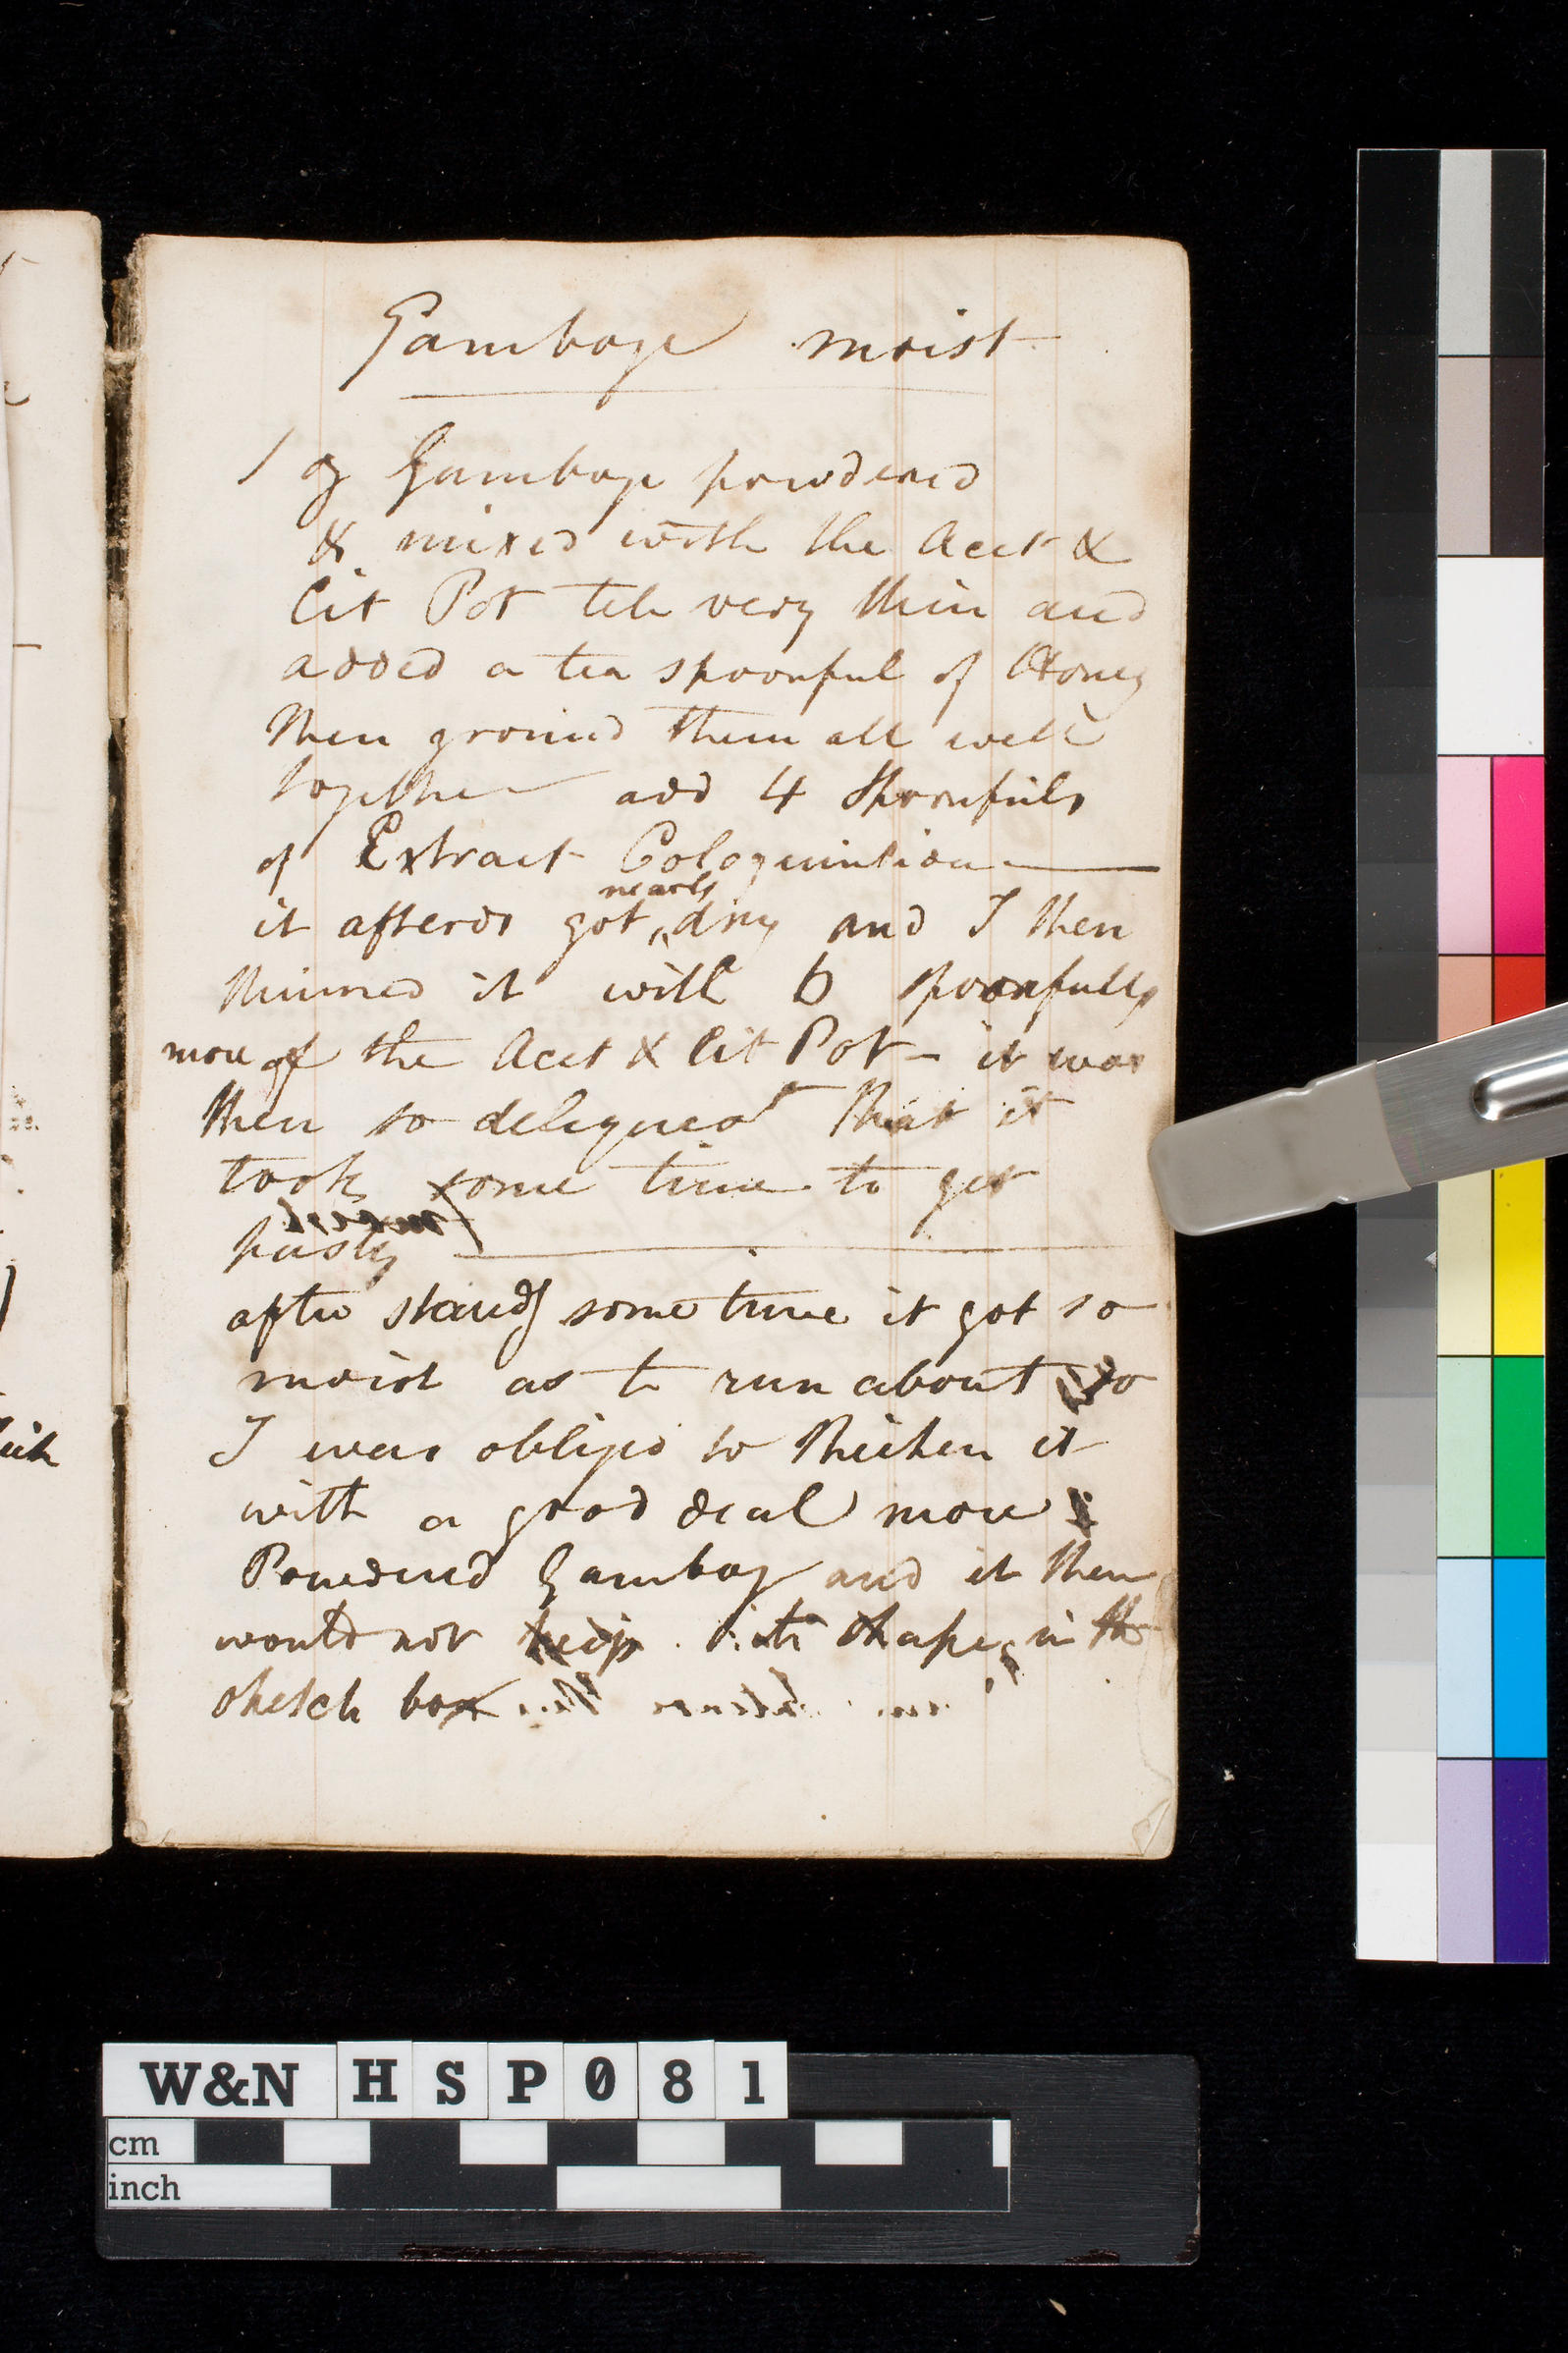 Gamboge moist
1 oz Gamboge powdered
& mixed with the Acet &
Cit Pot till very thin and
added a tea spoonful of Honey
then ground them all well
together add 4 Spoonfuls
of Extract Coloquintida
nearly
it afterds got dry and I then
thinned it with 6 spoonfulls
more of the Acet & Cit Pot - it was
then so deliquest that it
took some time to get
pasty
after standg some time it got so
moist as to run about so
I was obliged to thicken it
with a good deal more
Powdered Gamboge and it then
would not keep its shape in the
sketch box
W&N HSP081
cm
inch